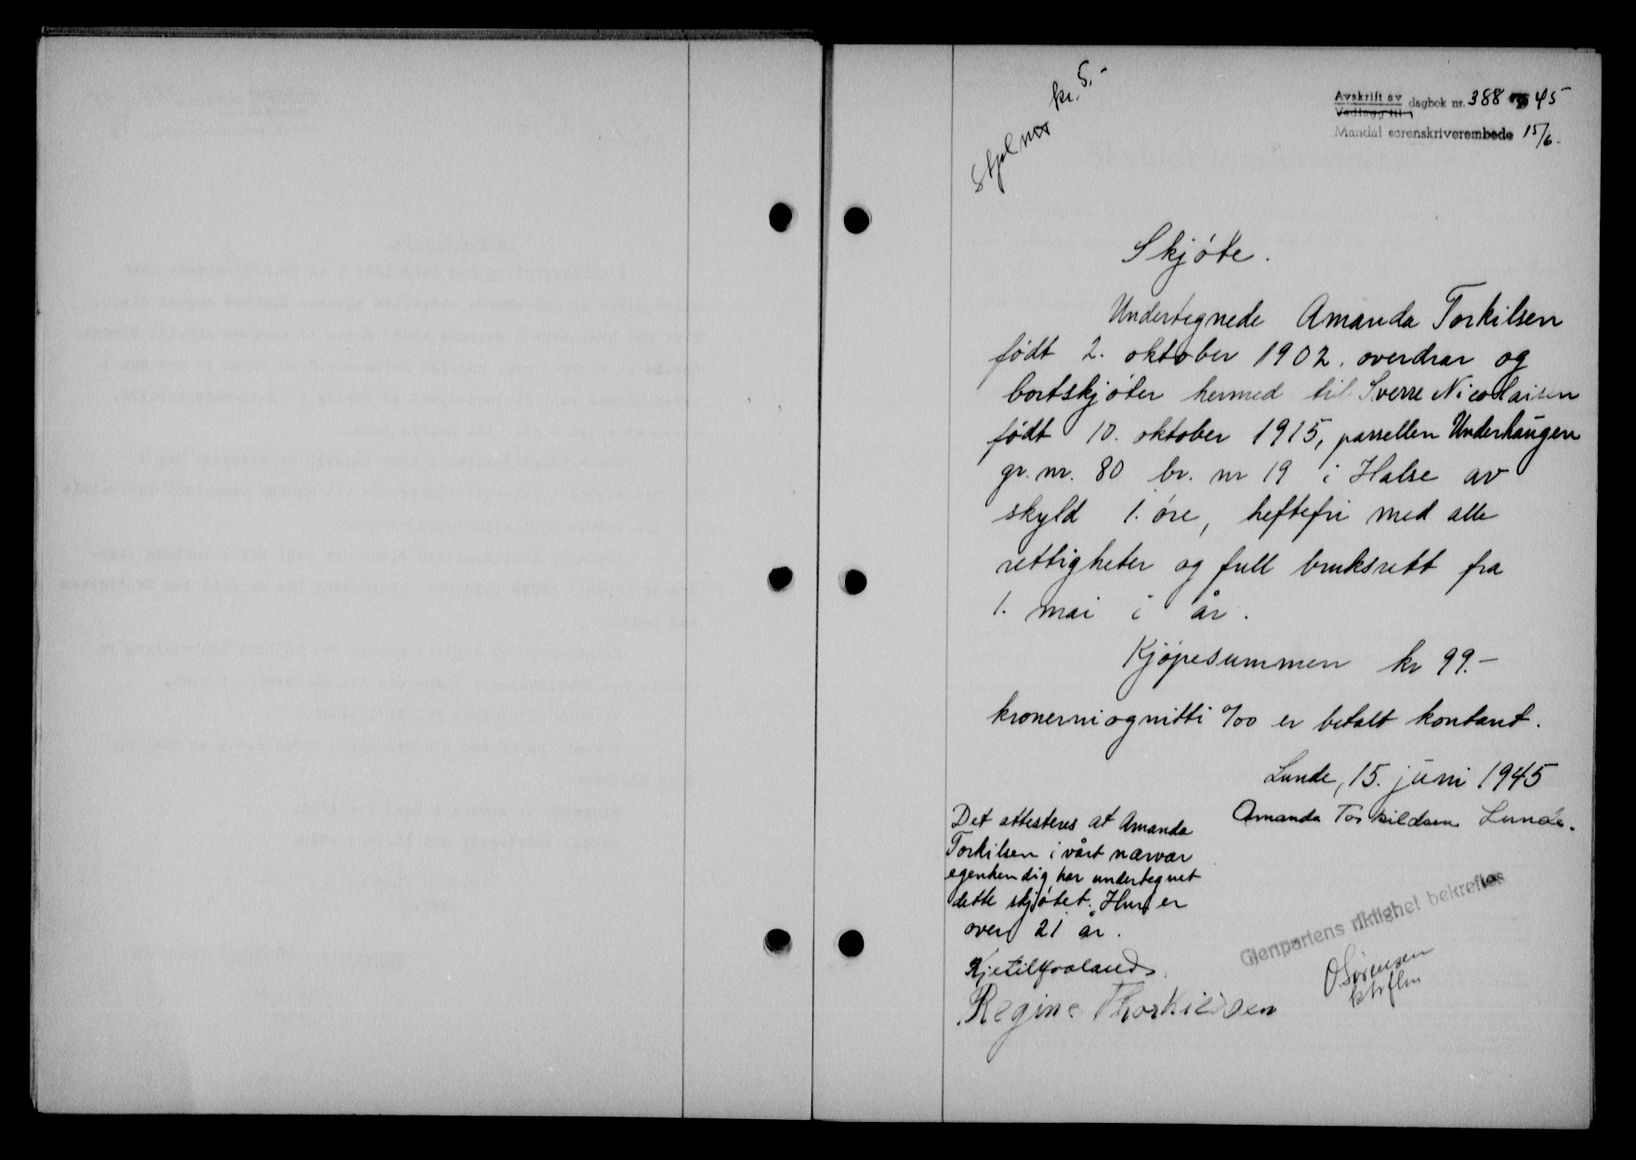 kr. 5.-
Avskrift av
Vedlegg til
dagbok nr. 388 45
Mandal sorenskriverembede 15/6.
Skjøte.
Undertegnede Amanda Torkilsen
født 2. oktober 1902. overdrar og
bortskjøter hermed til Sverre Nicolaisen
født 10. oktober 1915, parsellen Underhaugen
gr. nr. 80 br. nr 19 i Halse av
skyld 1. øre, heftefri med alle
rettigheter og full bruksrett fra
1. mai i år.
Kjøpesummen kr 99.-
kronerniognitti 0/00 er betalt kontant.
Lunde, 15. juni 1945
Amanda Torkildsen Lunde.
Det attesteres at Amanda
Torkilsen i vårt nærvær
egenhendig har undertegnet
dette skjøtet. Hun er
over 21 år.
Kjetil Haaland
Regine Thorkildsen
Gjenpartens riktighet bekreftes
O Sørensen
ktrflm